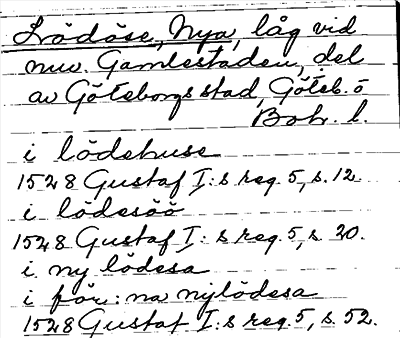 Lödöse, Nya, låg vid
nuv. Gamlestaden, del
av Göteborgs stad, Göteb. o
Boh. l.
i lödehuse
1528 Gustaf I:s reg. 5, s. 12.
i lödesöö
1528 Gustaf I:s reg. 5, s. 30.
i ny lödesa
i för:na nylödesa
1528 Gustaf I:s reg. 5, s. 52.